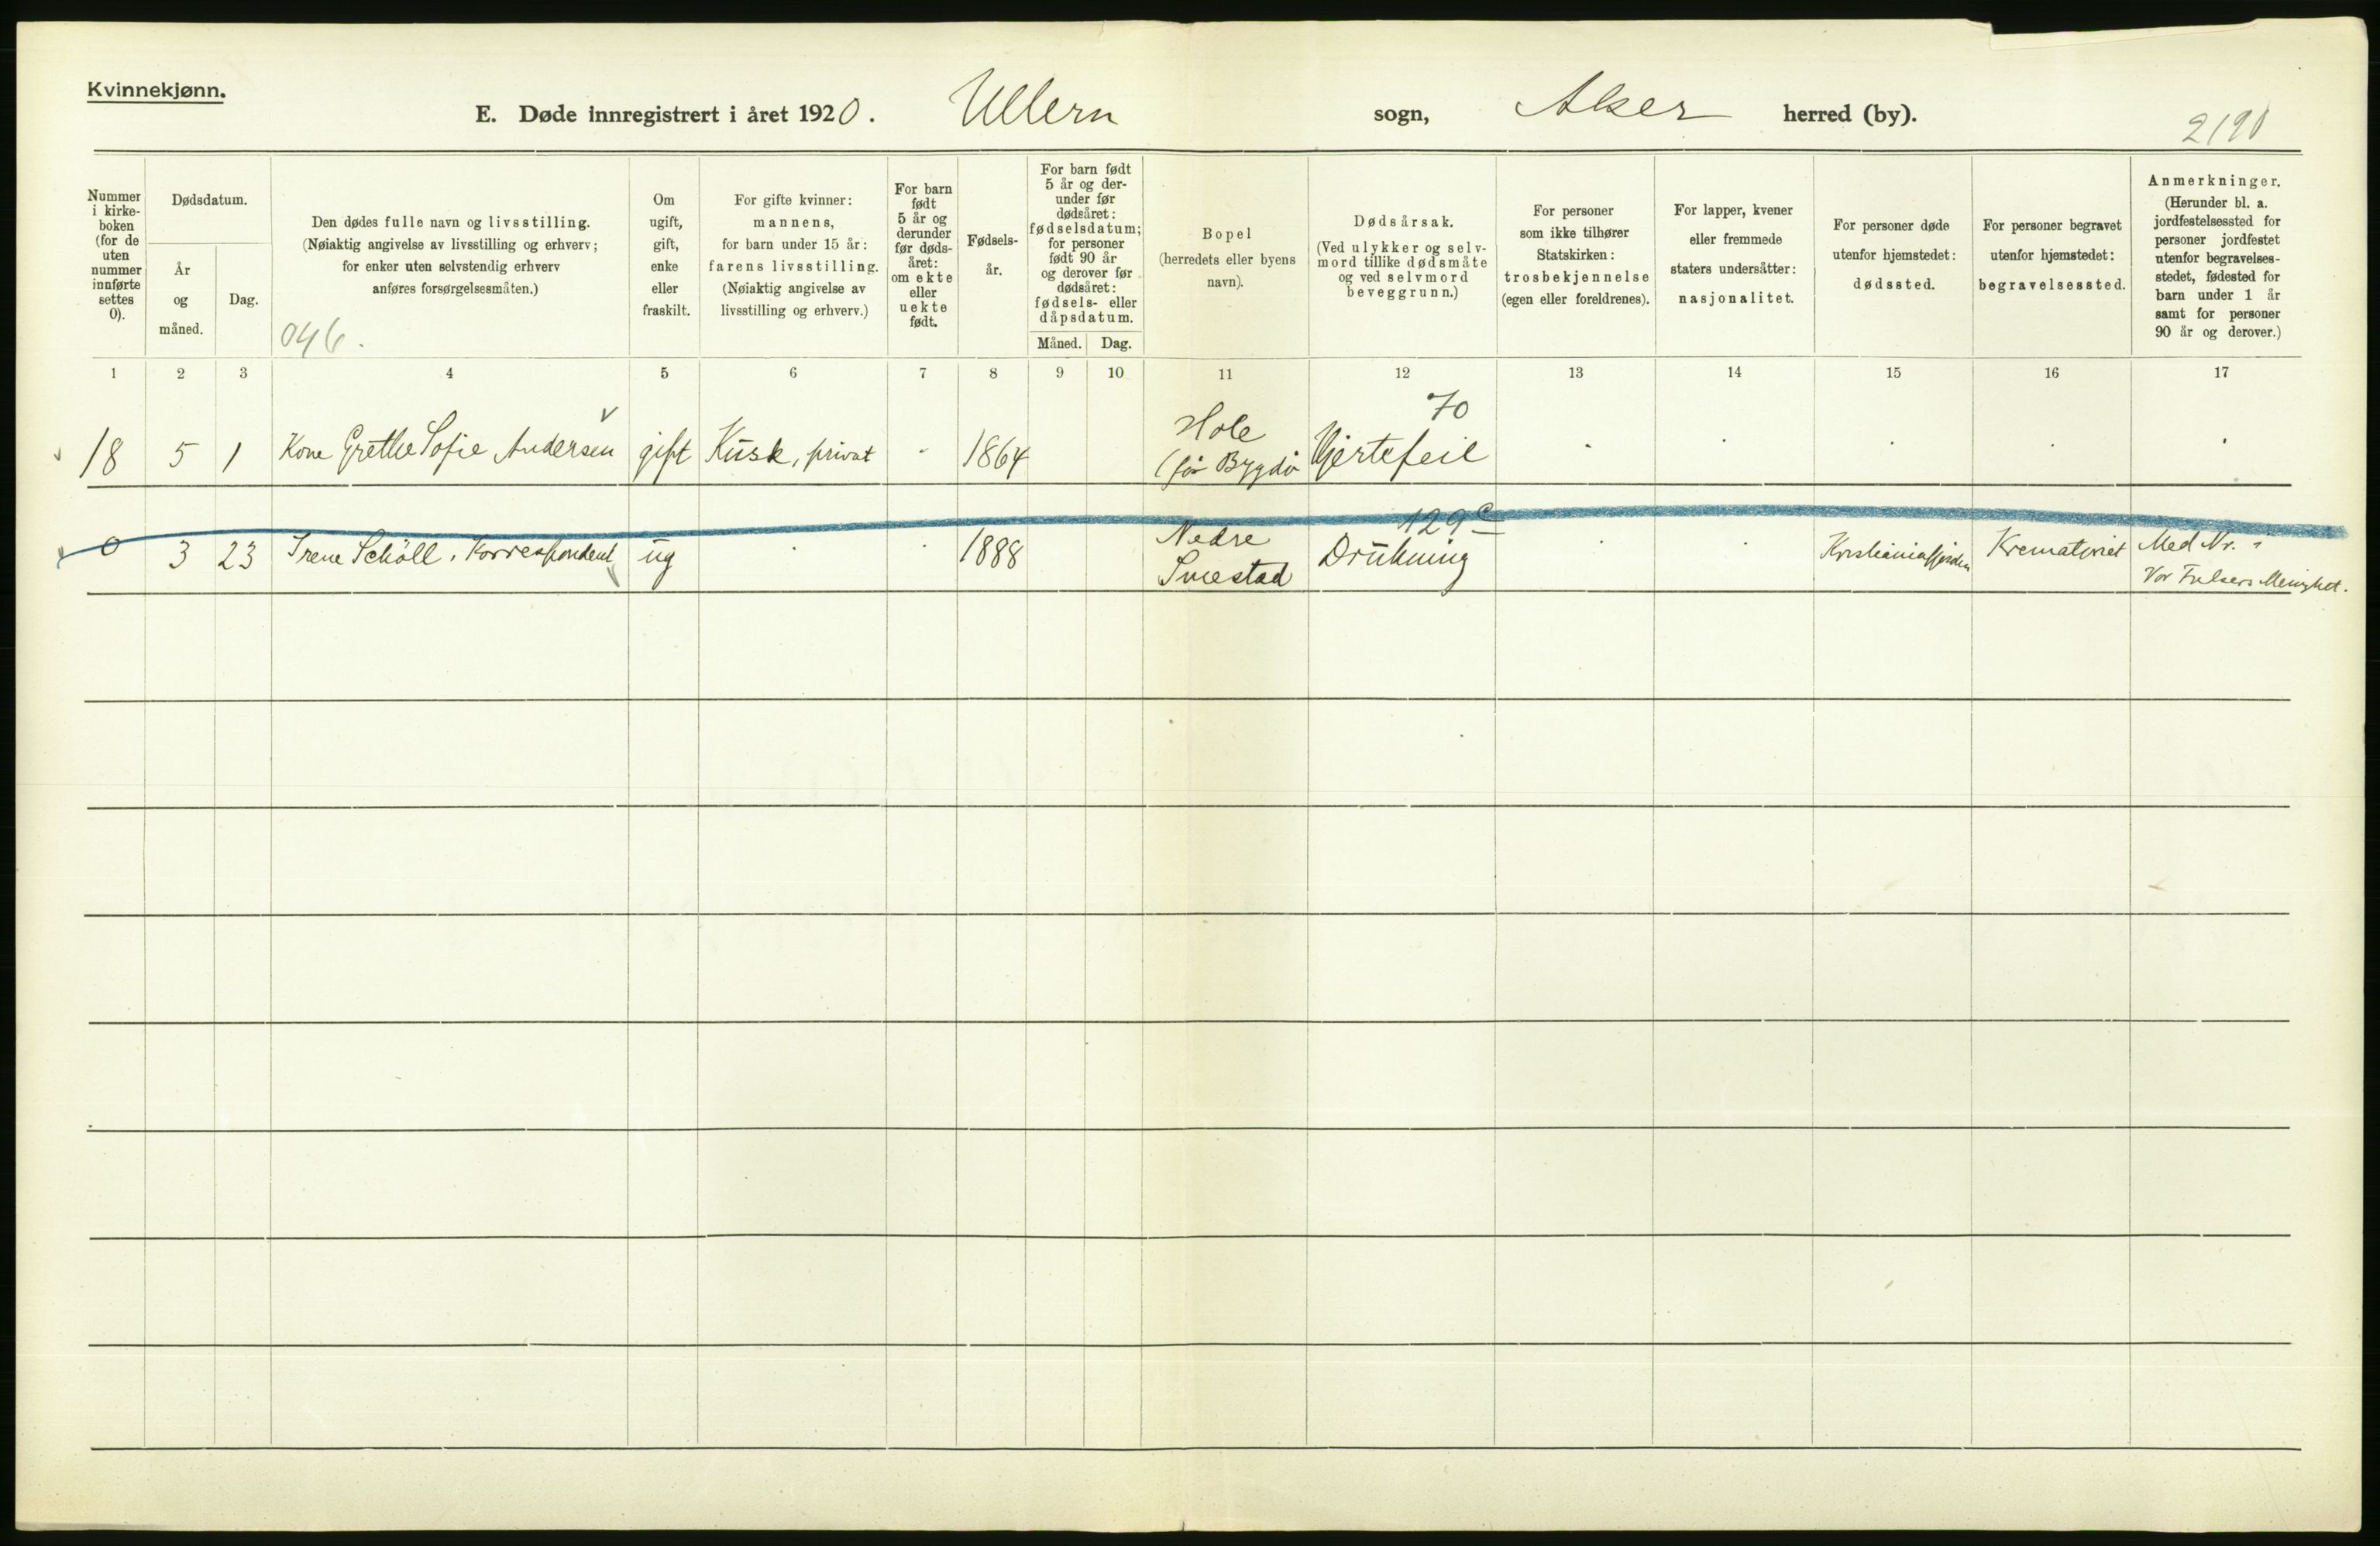 Kvinnekjønn.
E. Døde innregistrert i året 1920. Ullern sogn, Aker herred (by).
2190
Nummer
i kirke-
boken
(for de
uten
nummer
innførte
settes
0).
Dødsdatum.
År
og
måned.
Dag.
Den dødes fulle navn og livsstilling.
(Nøiaktig angivelse av livsstilling og erhverv;
for enker uten selvstendig erhverv
anføres forsørgelsesmåten.)
046.
Om
ugift,
gift,
enke
eller
fraskilt.
For gifte kvinner:
mannens,
for barn under 15 år:
farens livsstilling.
(Nøiaktig angivelse av
livsstilling og erhverv.)
For barn
født
5 år og
derunder
før døds-
året:
om ekte
eller
uekte
født.
Fødsels-
år.
For barn født
5 år og der-
under før
dødsåret:
fødselsdatum;
for personer
født 90 år
og derover før
dødsåret:
fødsels- eller
dåpsdatum.
Måned. Dag.
Bopel
(herredets eller byens
navn).
Dødsårsak.
(Ved ulykker og selv-
mord tillike dødsmåte
og ved selvmord
beveggrunn.)
For personer
som ikke tilhører
Statskirken:
trosbekjennelse
(egen eller foreldrenes).
For lapper, kvener
eller fremmede
staters undersåtter:
nasjonalitet.
For personer døde
utenfor hjemstedet:
dødssted.
For personer begravet
utenfor hjemstedet:
begravelsessted.
Anmerkninger.
(Herunder bl. a.
jordfestelsessted for
personer jordfestet
utenfor begravelses-
stedet, fødested for
barn under 1 år
samt for personer
90 år og derover.)
1 2 3 4 5 6 7 8 9 10 11 12 13 14 15 16 17
70
Hole
18 5 1 Kone Grethe Sofie Andersen gift Kusk, privat - 1864 (før Bygdø Hjertefeil
129c
Nedre
0 3 23 Irene Schöll, Korrespondent ug 1888 Smestad Drukning Kristianiafjorden Krematoriet Med Nr. i
Vor Frelsers Menighet.